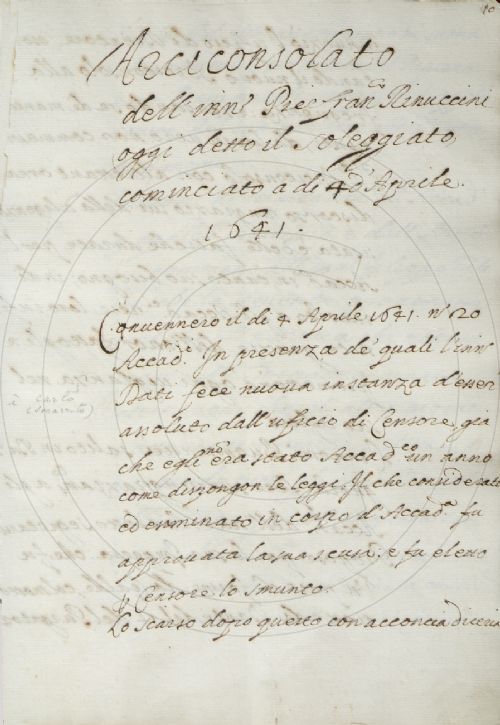 10
Arciconsolato
dell'inn.º Pier fran.º Rinuccini
oggi detto il Soleggiato
cominciato a di 4 d'Aprile
1641.
Convennero il di 4 Aprile 1641. n.º 20
Accad.ci In presenza de' quali l'inn.º
Dati fece nuova instanza d'esser
assoluto dall'ufficio di Censore, già
che egli non era stato Accad.co un anno
come dispongon le leggi. Il che considerato
ed esaminato in corpo d'Accad.ª fu
approvata la sua scusa: e fu eletto
p Censore lo smunto.
Lo scarso dopo questo con acconcia diceria
i Carlo
(Smarrito)